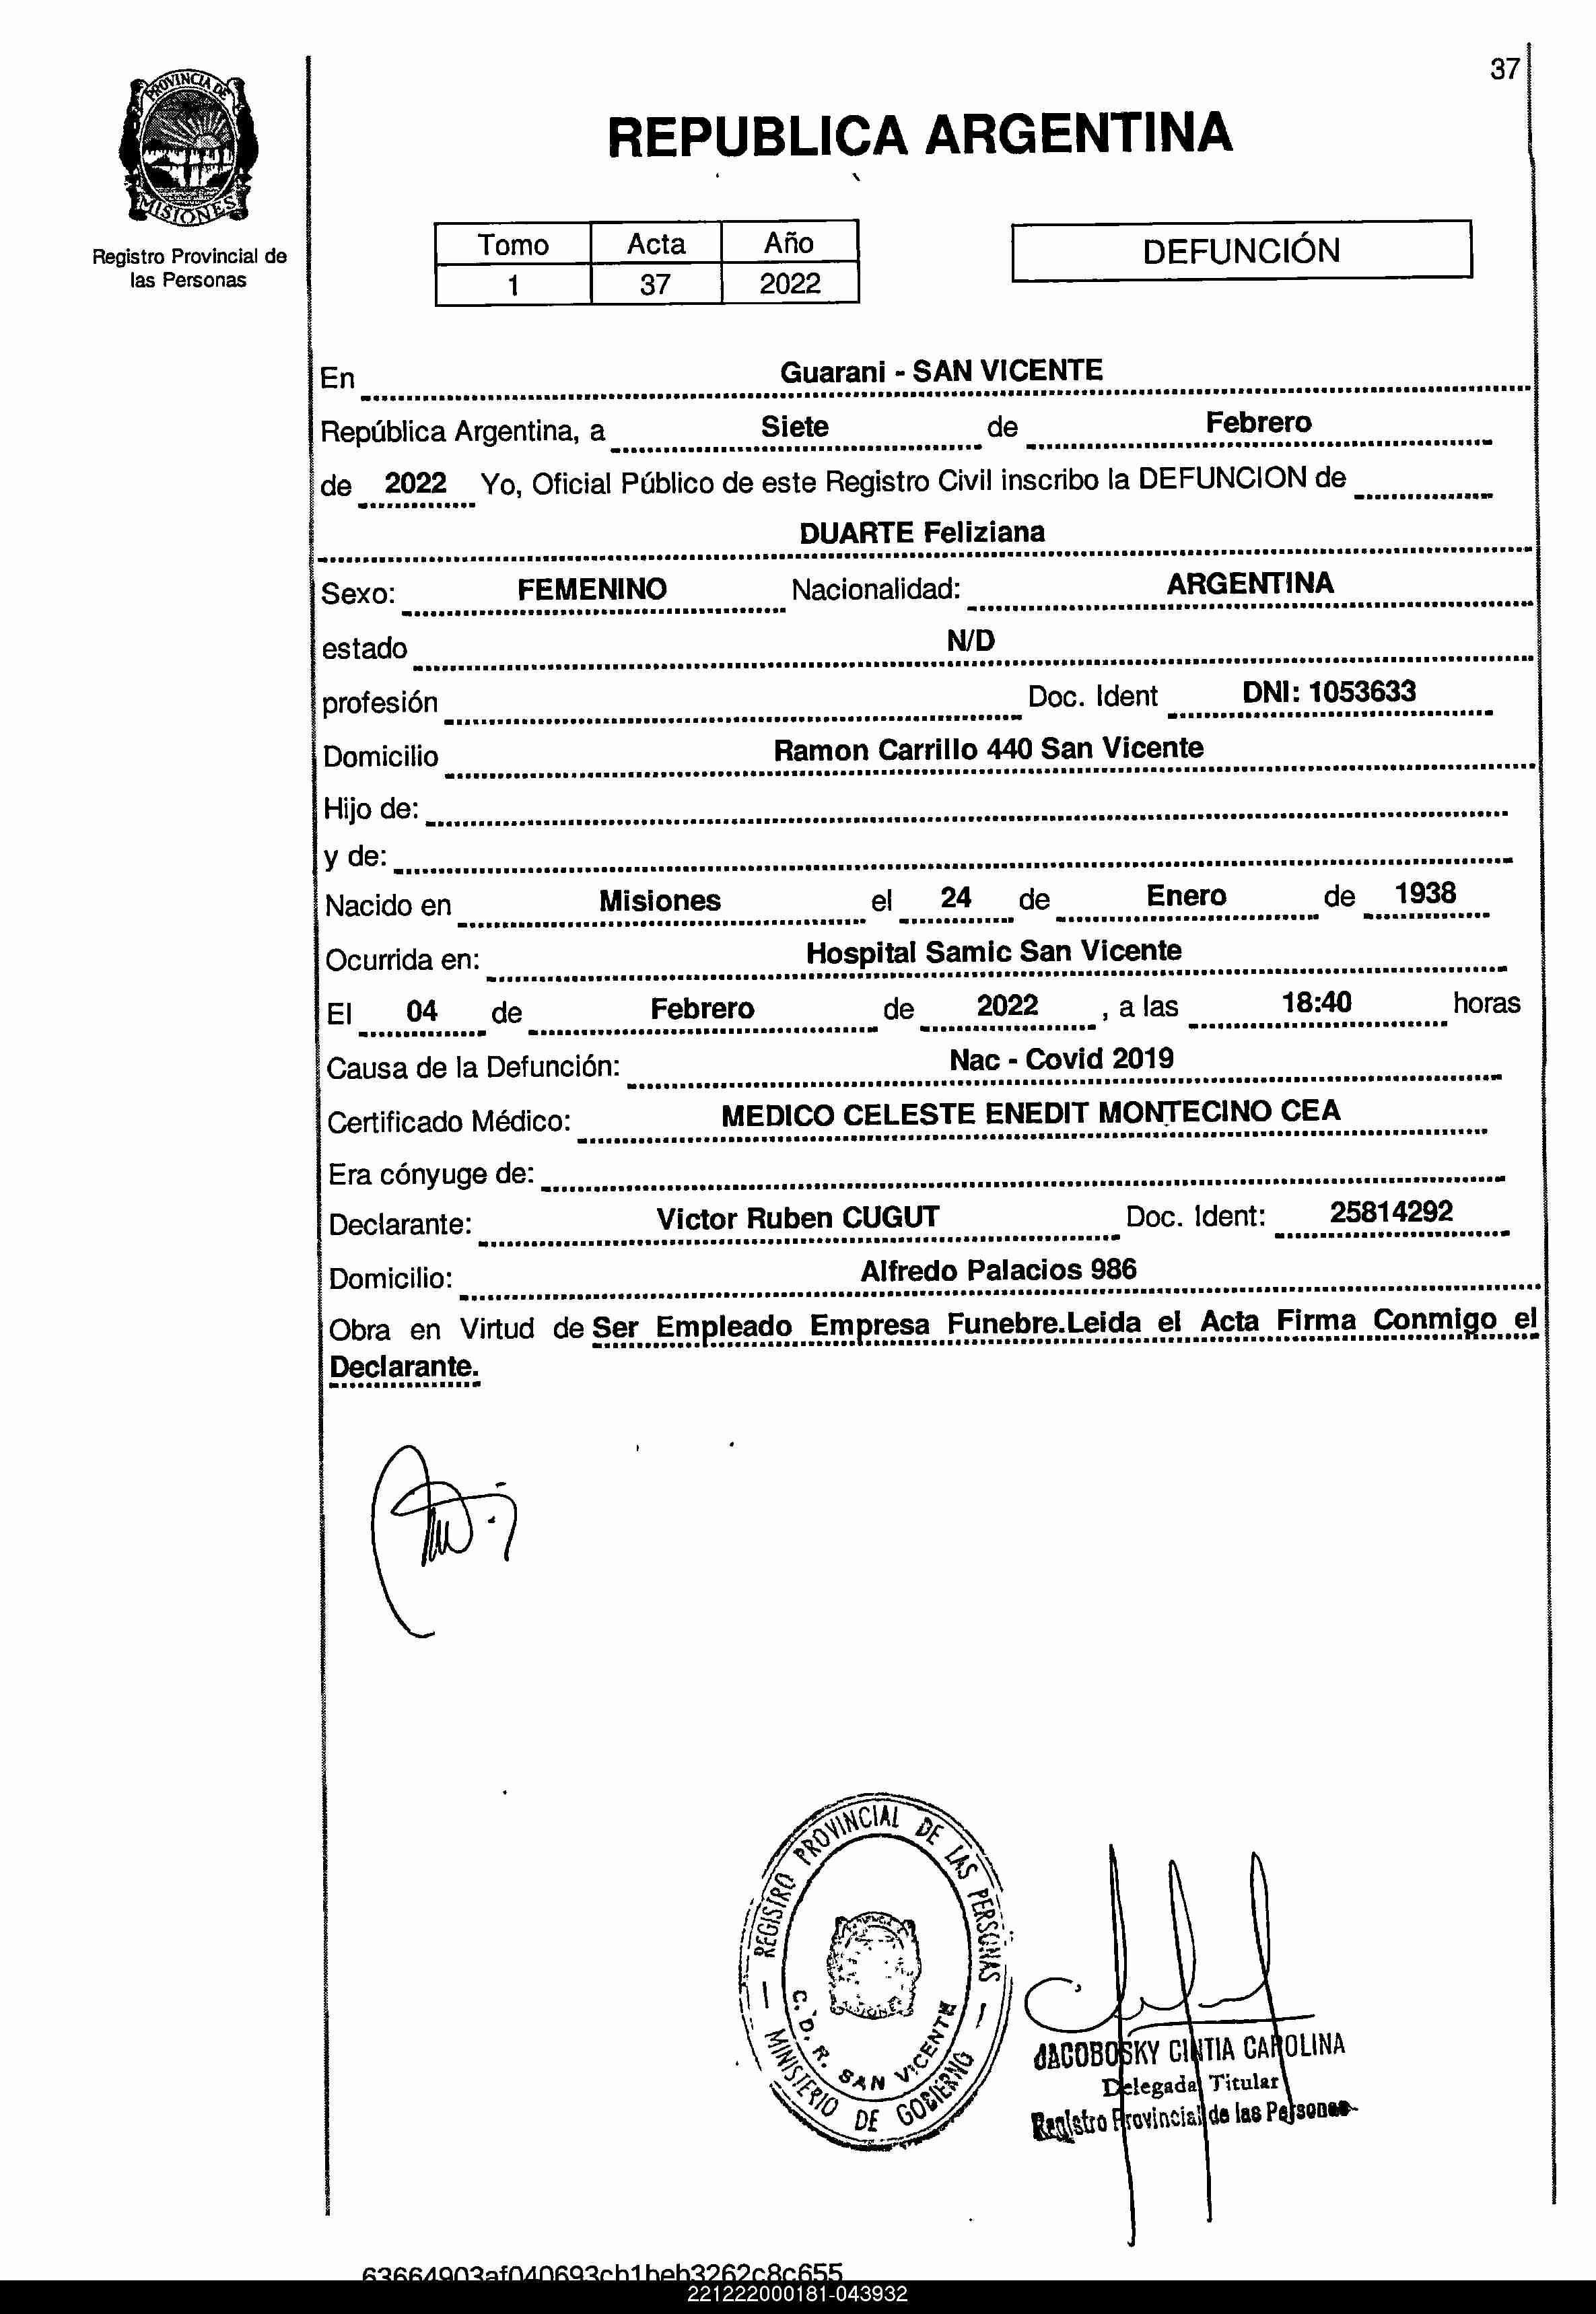 37
PROVINCIA DE
MISIONES
Registro Provincial de
las Personas
REPUBLICA ARGENTINA
Tomo Acta Año
1 37 2022
DEFUNCIÓN
En Guarani - SAN VICENTE
República Argentina, a Siete de Febrero
de 2022 Yo, Oficial Público de este Registro Civil inscribo la DEFUNCION de
DUARTE Feliziana
Sexo: FEMENINO Nacionalidad: ARGENTINA
estado N/D
profesión Doc. Ident DNI: 1053633
Domicilio Ramon Carrillo 440 San Vicente
Hijo de:
y de:
Nacido en Misiones el 24 de Enero de 1938
Ocurrida en: Hospital Samic San Vicente
El 04 de Febrero de 2022 , a las 18:40 horas
Causa de la Defunción: Nac - Covid 2019
Certificado Médico: MEDICO CELESTE ENEDIT MONTECINO CEA
Era cónyuge de:
Declarante: Victor Ruben CUGUT Doc. Ident: 25814292
Domicilio: Alfredo Palacios 986
Obra en Virtud de Ser Empleado Empresa Funebre.Leida el Acta Firma Conmigo el
Declarante.
REGISTRO PROVINCIAL DE LAS PERSONAS
C. D. R. SAN VICENTE
MINISTERIO DE GOBIERNO
JACOBOSKY CINTIA CAROLINA
Delegada Titular
Registro Provincial de las Personas
63664903af040693cb1beb3262c8c655
221222000181-043932